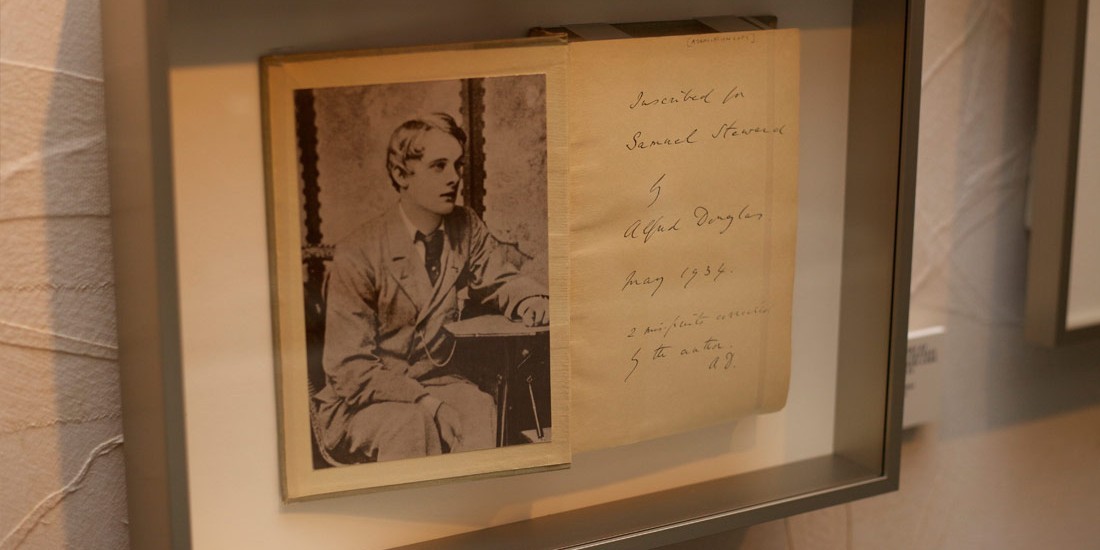 Inscribed for
Samuel Steward
by
Alfred Douglas
May 1934.
2 misprints corrected
by the author.
A.D.